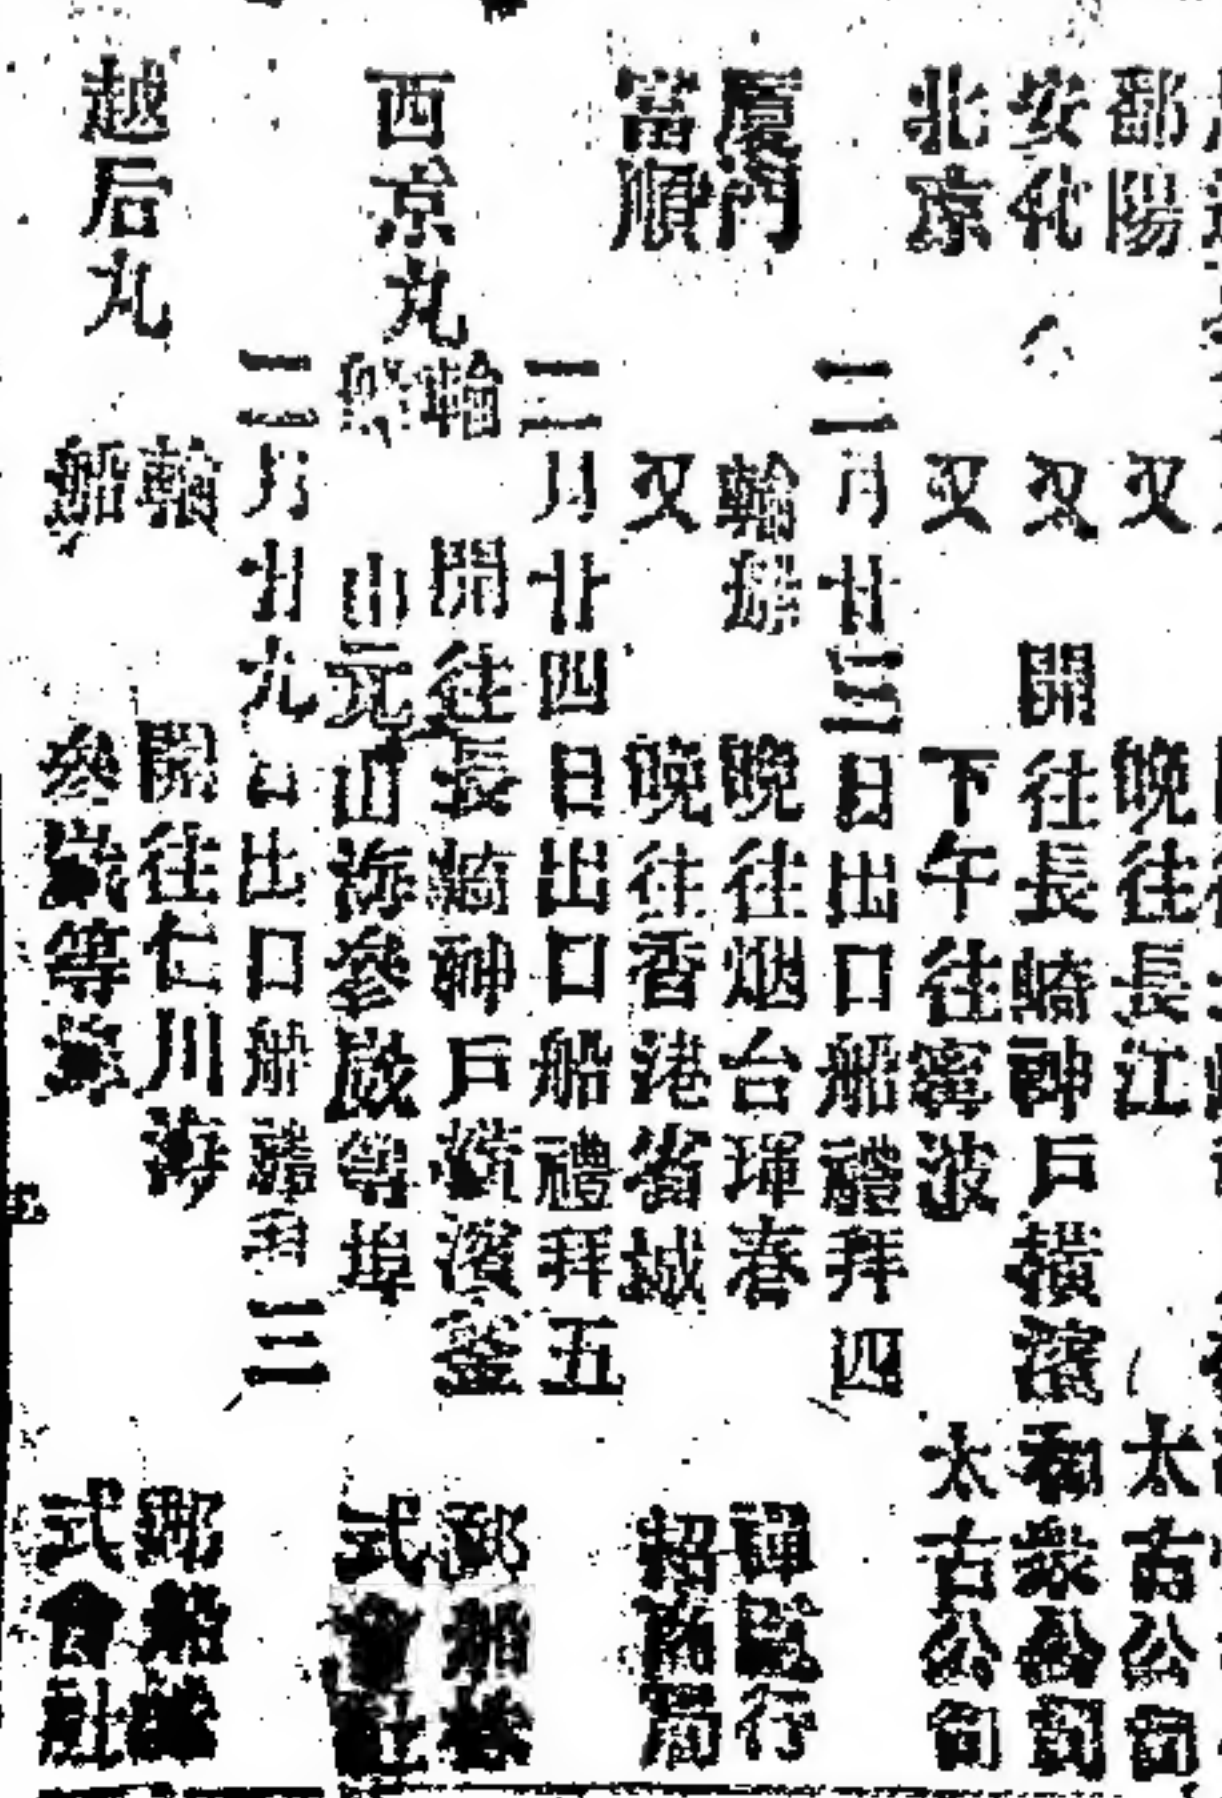 鄱陽 又 晚往長江 太古公司
安化 又 開往長崎神戶橫濱 和衆公司
北京 又 下午往寧波 太古公司
二月廿三日出口船禮拜四
廈門 輪船 晚往烟台琿春 禪臣行
富順 又 晚往香港省城 招商局
二月廿四日出口船禮拜五
西京丸 輪船 開往長崎神戶橫濱釜山元山海參崴等埠 郵船株式會社
二月廿九日出口船禮拜三
越后丸 輪船 開往仁川海參崴等埠 郵船株式會社